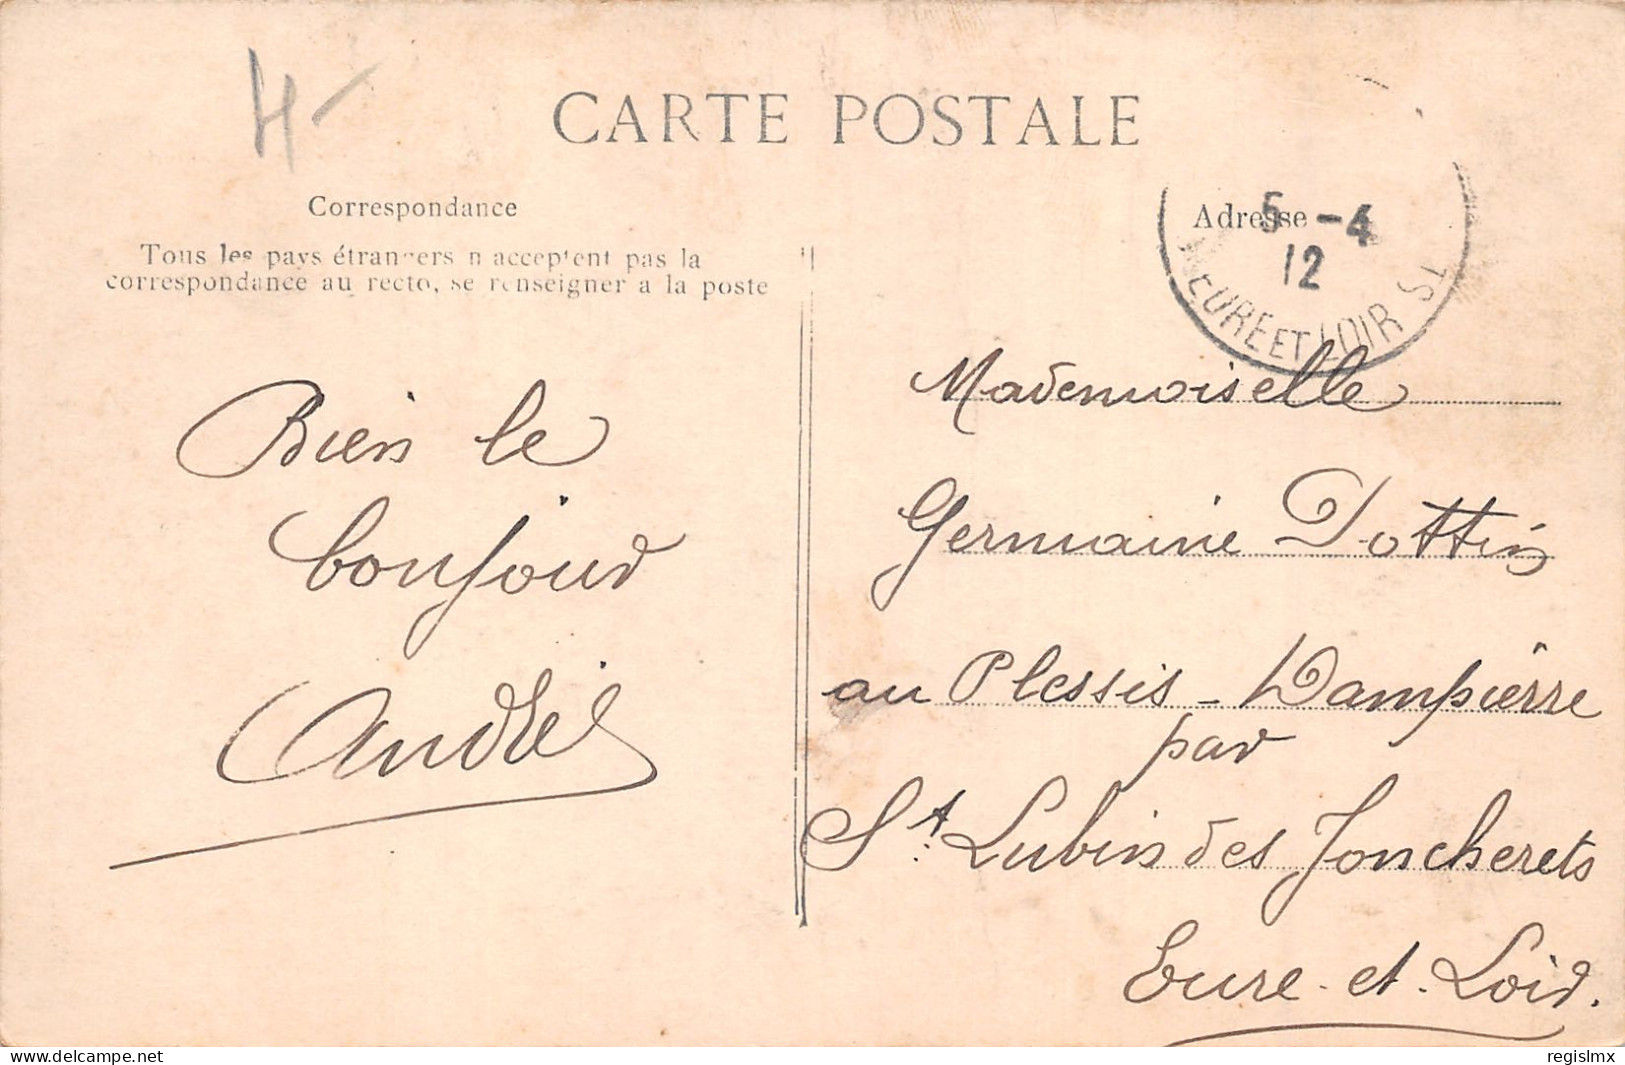 H -
CARTE POSTALE
Correspondance
Tous les pays étrangers n acceptent pas la
correspondance au recto, se renseigner a la poste
Bien le
bonjour
André
Adresse
5 -4
12
EURE ET LOIR
Mademoiselle
Germaine Dottin
au Plessis - Dampierre
par
St. Lubin des Joncherets
Eure - et - Loir.
www.delcampe.net
regislmx